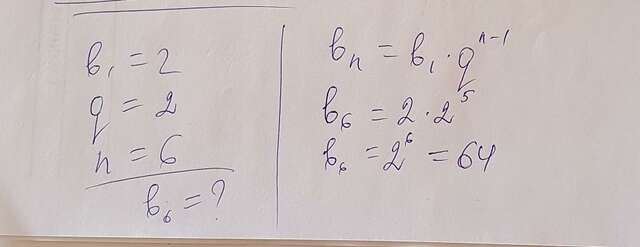 b₁ = 2
q = 2
n = 6
b₆ = ?
bₙ = b₁ · qⁿ⁻¹
b₆ = 2 · 2⁵
b₆ = 2⁶ = 64